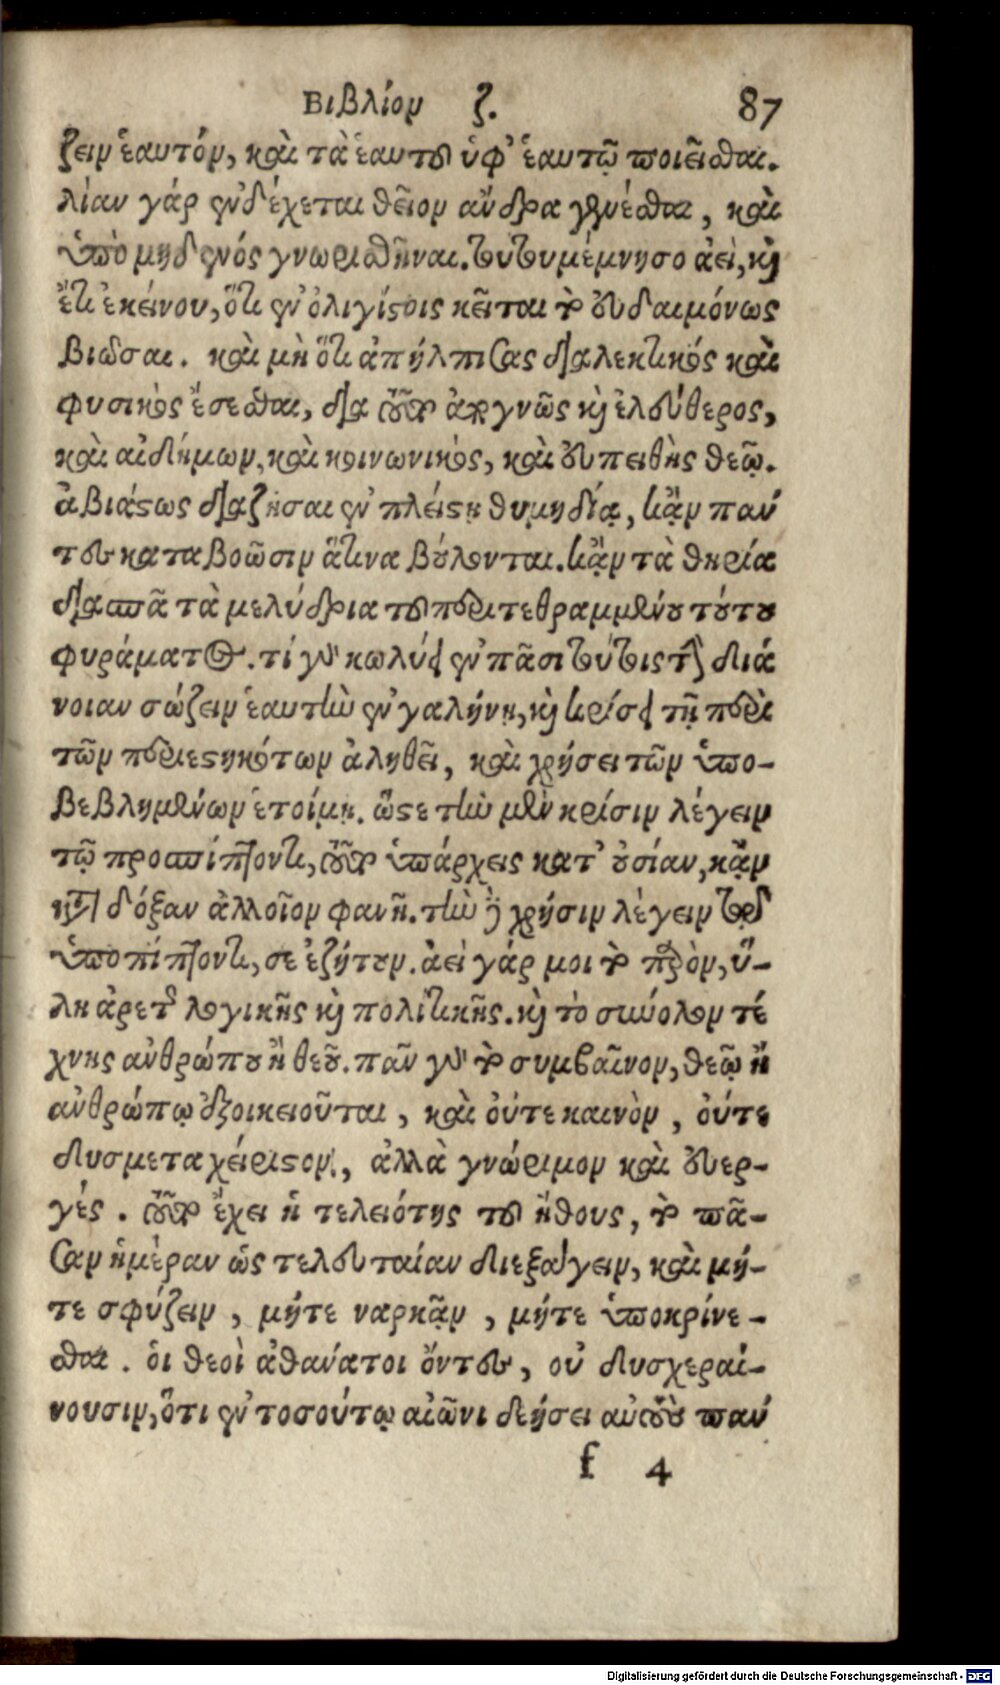 Βιβλίον ζ. 87
ζειν ἑαυτόν, καὶ τὰ ἑαυτοῦ ὑφ' ἑαυτῷ ποιεῖσθαι.
λίαν γάρ ἐνδέχεται θεῖον ἄνδρα γενέσθαι, καὶ
ὑπὸ μηδενός γνωρισθῆναι. τούτου μέμνησο ἀεὶ, καὶ
ἔτι ἐκείνου, ὅτι ἐν ὀλιγίστοις κεῖται τὸ εὐδαιμόνως
βιῶσαι. καὶ μὴ ὅτι ἀπήλπισας διαλεκτικός καὶ
φυσικὸς ἔσεσθαι, διὰ τοῦτο ἀπογνῶς καὶ ἐλεύθερος,
καὶ αἰδήμων, καὶ κοινωνικὸς, καὶ εὐπειθὴς θεῷ.
ἀβιάστως διαζῆσαι ἐν πλείστῃ θυμηδίᾳ, κἂν πάν
τες καταβοῶσιν ἅτινα βούλονται. κἂν τὰ θηρία
διασπᾶ τὰ μελύδρια τοῦ περιτεθραμμένου τούτου
φυράματος. τί γὰρ κωλύει ἐν πᾶσι τούτοις τὴν διά
νοιαν σώζειν ἑαυτὴν ἐν γαλήνῃ, καὶ κρίσει τῇ περὶ
τῶν περιεστηκότων ἀληθεῖ, καὶ χρήσει τῶν ὑπο-
βεβλημένων ἑτοίμῃ. ὥστε τὴν μὲν κρίσιν λέγειν
τῷ προσπίπτοντι, τοῦτο ὑπάρχεις κατ' οὐσίαν, κἂν
κατὰ δόξαν ἀλλοῖον φανῇ. τὴν δὲ χρήσιν λέγειν τῷ
ὑποπίπτοντι, σε ἐζήτουν. ἀεί γάρ μοι τὸ παρὸν, ὕ-
λη ἀρετῆς λογικῆς καὶ πολιτικῆς. καὶ τὸ σύνολον τέ
χνης ἀνθρώπου ἢ θεοῦ. πᾶν γὰρ τὸ συμβαῖνον, θεῷ ἢ
ἀνθρώπῳ ἐξοικειοῦται, καὶ οὔτε καινὸν, οὔτε
δυσμεταχείριστον, ἀλλὰ γνώριμον καὶ εὐερ-
γές. τοῦτο ἔχει ἡ τελειότης τοῦ ἤθους, τὸ πᾶ-
σαν ἡμέραν ὡς τελευταίαν διεξάγειν, καὶ μή-
τε σφύζειν, μήτε ναρκᾷν, μήτε ὑποκρίνε-
σθαι. οἱ θεοὶ ἀθανάτοι ὄντες, οὐ δυσχεραί-
νουσιν, ὅτι ἐν τοσούτῳ αἰῶνι δεήσει αὐτοὺς παν
f 4
Digitalisierung gefördert durch die Deutsche Forschungsgemeinschaft - DFG